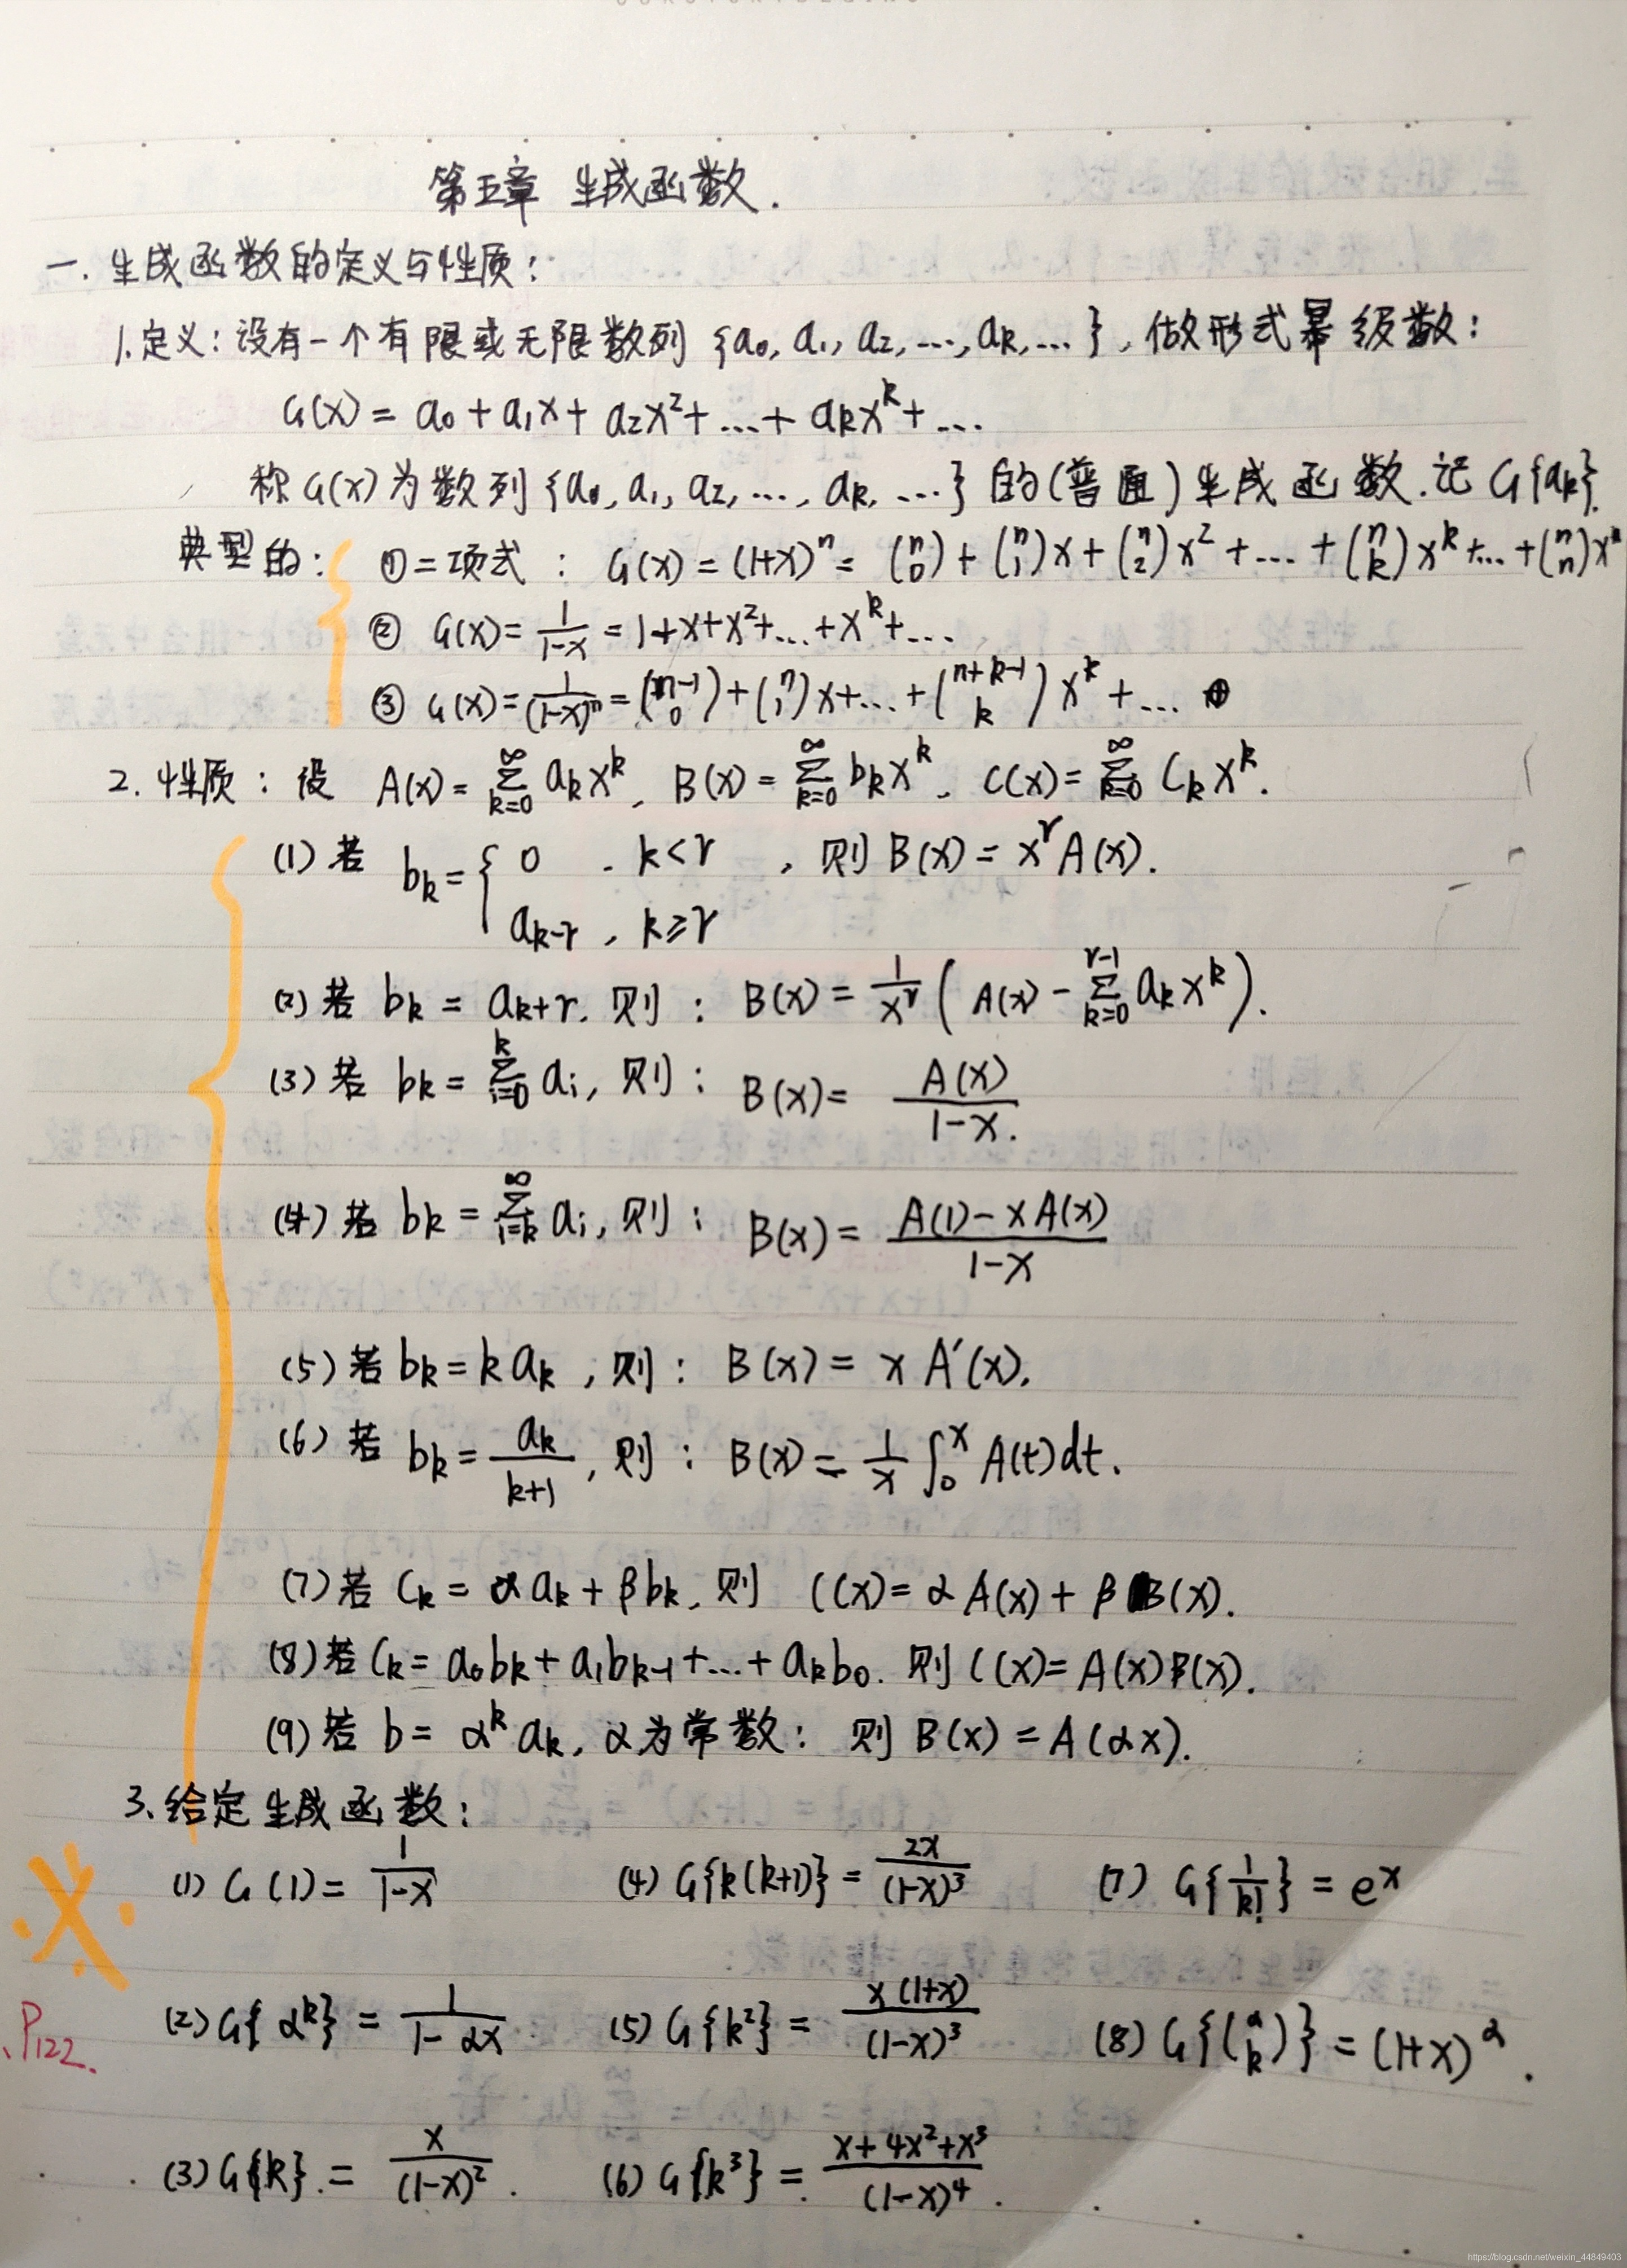 第五章 生成函数.
一. 生成函数的定义与性质:
1.定义: 设有一个有限或无限数列 {a₀, a₁, a₂, ..., aₖ, ...}, 做形式幂级数:
G(x) = a₀ + a₁x + a₂x² + ... + aₖxᵏ + ...
称G(x)为数列{a₀, a₁, a₂, ..., aₖ, ...}的(普通)生成函数.记 G{aₖ}.
典型的: ①二项式: G(x) = (1+x)ⁿ = (n 0) + (n 1)x + (n 2)x² + ... + (n k)xᵏ + ... + (n n)xⁿ
② G(x) = 1/(1-x) = 1+x+x²+...+xᵏ+...
③ G(x) = 1/(1-x)ⁿ = (n-1 0) + (n 1)x + ... + (n+k-1 k)xᵏ + ...
2. 性质: 设 A(x) = ∑_{k=0}^{∞} aₖxᵏ, B(x) = ∑_{k=0}^{∞} bₖxᵏ, C(x) = ∑_{k=0}^{∞} Cₖxᵏ.
(1) 若 bₖ = { 0 , k<r , 则 B(x) = xʳA(x).
aₖ₋ᵣ , k≥r
(2) 若 bₖ = aₖ₊ᵣ, 则: B(x) = 1/xʳ ( A(x) - ∑_{k=0}^{r-1} aₖxᵏ ).
(3) 若 bₖ = ∑_{i=0}^{k} aᵢ, 则: B(x) = A(x)/(1-x).
(4) 若 bₖ = ∑_{i=k}^{∞} aᵢ, 则: B(x) = (A(1) - xA(x))/(1-x)
(5) 若 bₖ = kaₖ, 则: B(x) = xA′(x).
(6) 若 bₖ = aₖ/(k+1), 则: B(x) = 1/x ∫₀ˣ A(t)dt.
(7) 若 Cₖ = αaₖ + βbₖ, 则 C(x) = αA(x) + βB(x).
(8) 若 Cₖ = a₀bₖ + a₁bₖ₋₁ + ... + aₖb₀. 则 C(x) = A(x)B(x).
(9) 若 b = αᵏaₖ, α为常数: 则 B(x) = A(αx).
3. 给定生成函数:
(1) G(1) = 1/(1-x) (4) G{k(k+1)} = 2x/(1-x)³ (7) G{1/k!} = eˣ
(2) G{αᵏ} = 1/(1-αx) (5) G{k²} = x(1+x)/(1-x)³ (8) G{(α k)} = (1+x)^α.
P₁₂₂.
(3) G{k} = x/(1-x)². (6) G{k³} = (x+4x²+x³)/(1-x)⁴.
https://blog.csdn.net/weixin_44849403